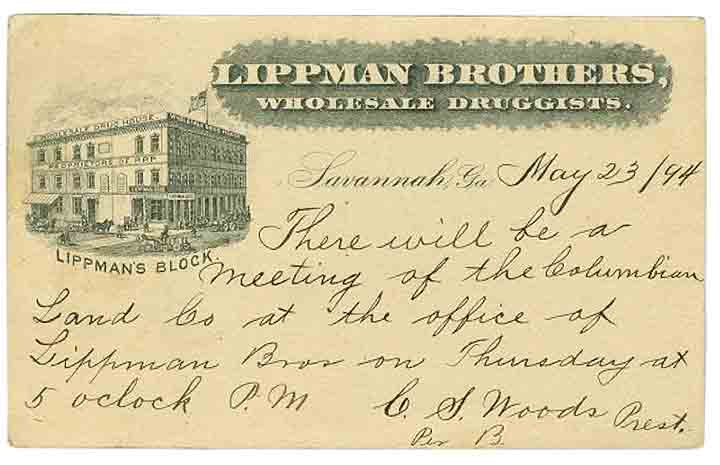 LIPPMAN BROTHERS,
WHOLESALE DRUGGISTS.
WHOLESALE DRUG HOUSE
PROPRIETORS OF P.P.P.
LIPPMAN'S BLOCK.
Savannah, Ga. May 23/94
There will be a
meeting of the Columbian
Land Co at the office of
Lippman Bros on Thursday at
5 oclock P.M C. S. Woods Prest.
Per B.